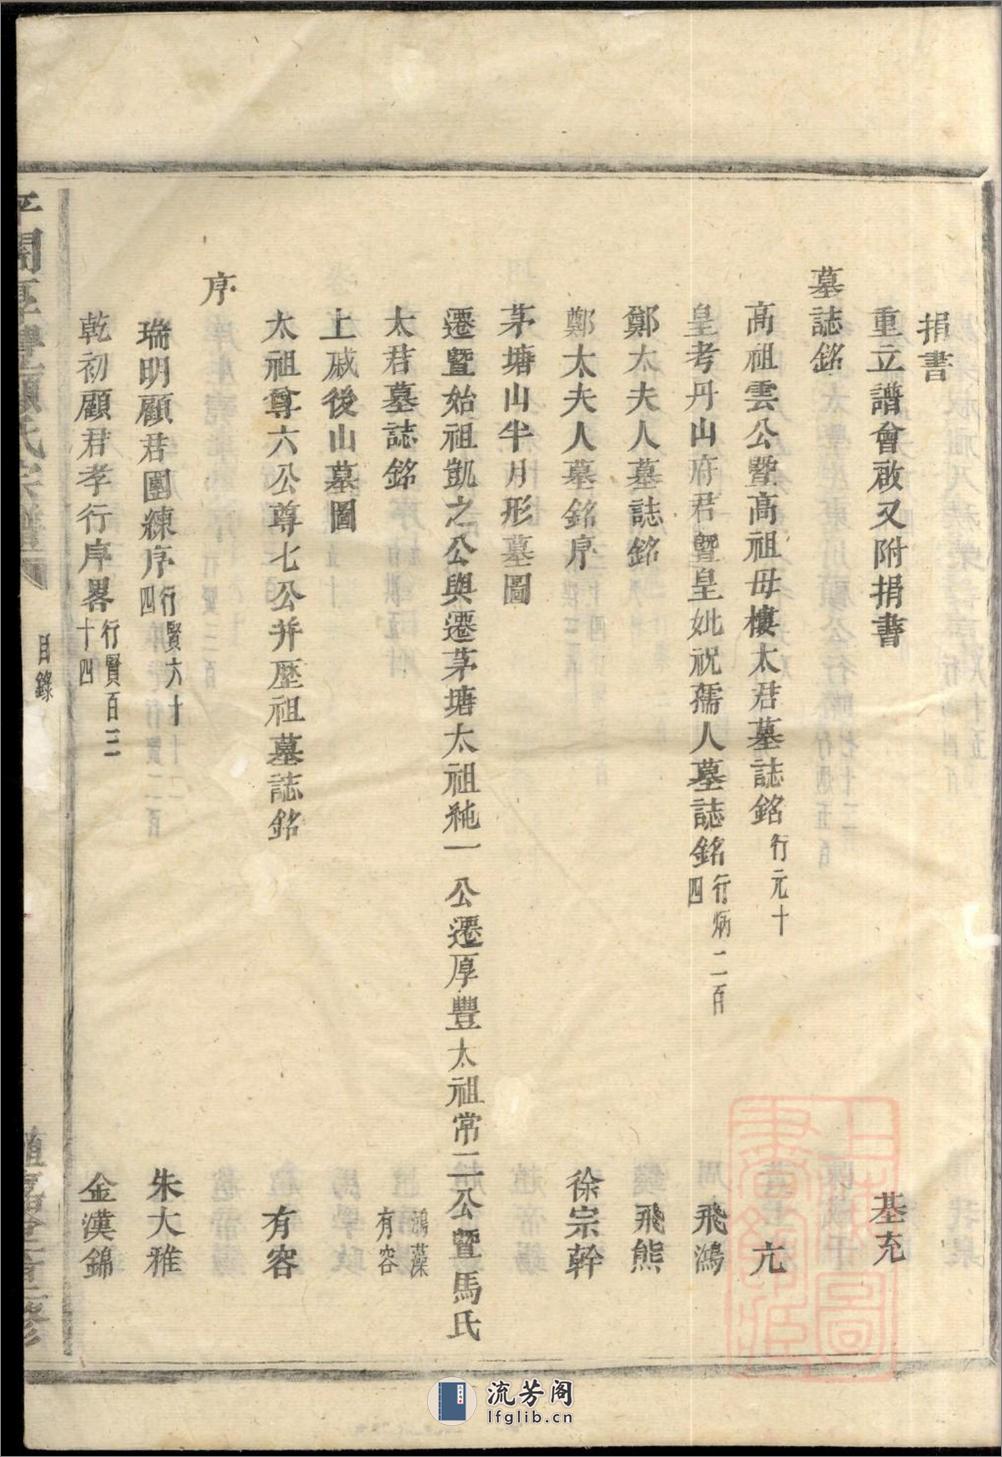 捐書
重立譜會啟又附捐書 基充
墓誌銘
高祖雲公曁高祖母樓太君墓誌銘 行元十 亢
皇考丹山府君曁皇妣祝孺人墓誌銘 行炳二百四 飛鴻
鄭太夫人墓誌銘 飛熊
鄭太夫人墓銘序 徐宗幹
茅塘山半月形墓圖
遷曁始祖凱之公與遷茅塘太祖純一公遷厚豐太祖常二公曁馬氏
太君墓誌銘 鴻藻 有容
上戚後山墓圖
太祖尊六公尊七公并歷祖墓誌銘 有容
序
瑞明顧君團練序 行賢六十四 朱大雅
乾初顧君孝行序畧 行賢百三十四 金漢錦
目錄
上海圖書館藏
流芳阁
lfglib.cn